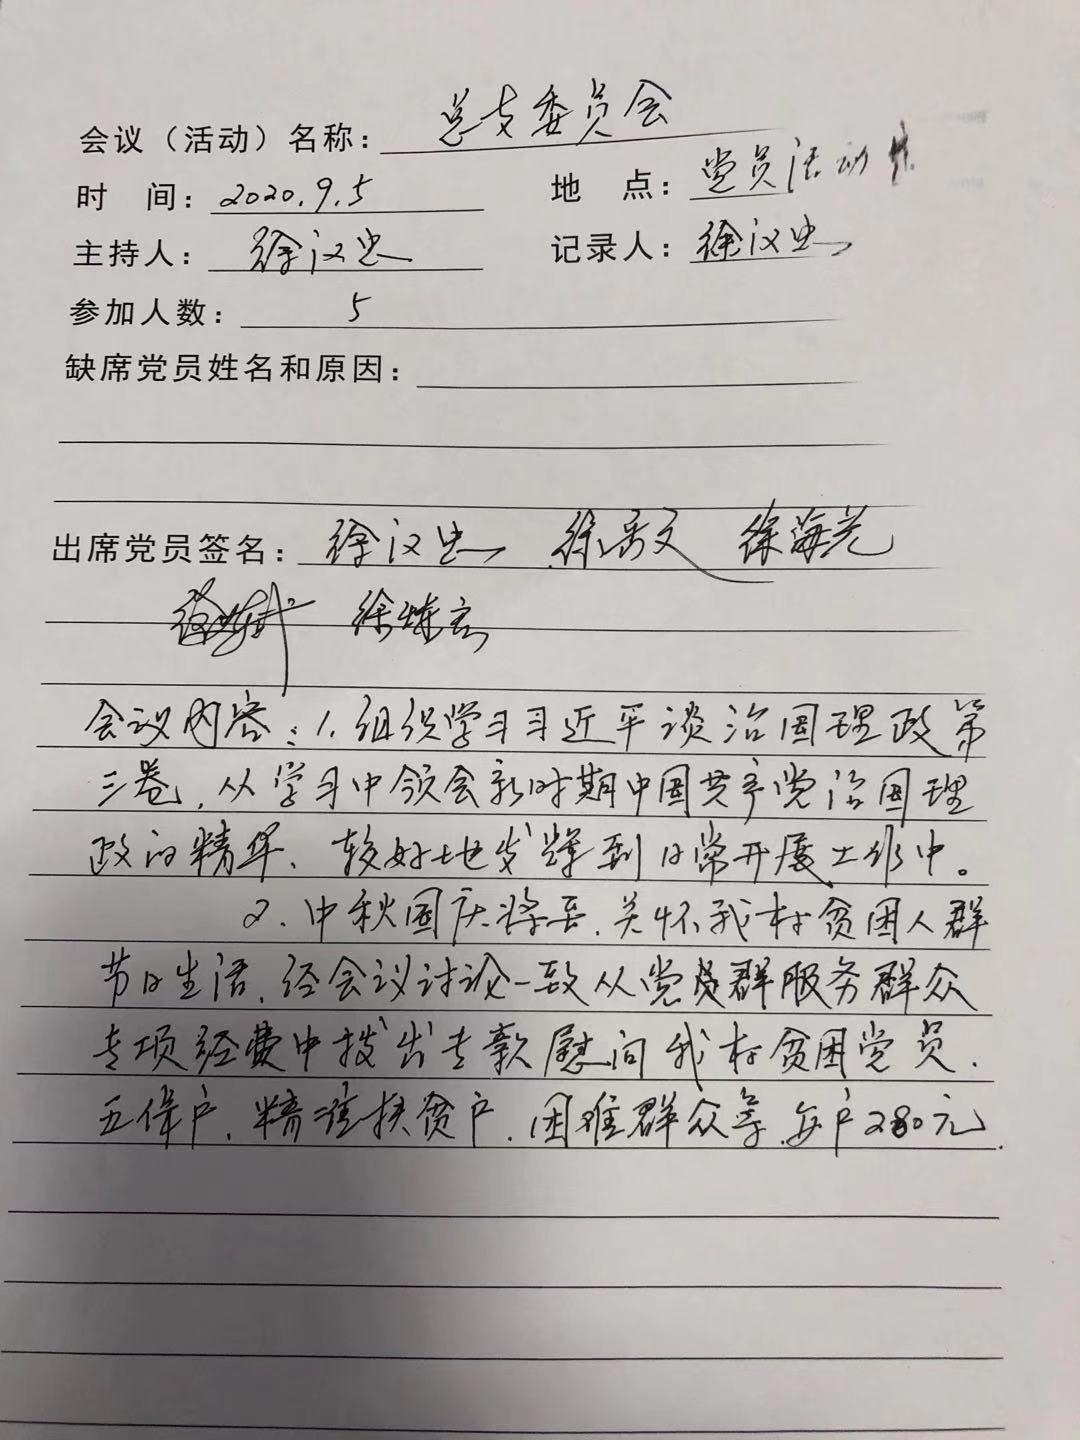 会议（活动）名称：总支委员会
时 间：2020.9.5 地 点：党员活动
主持人：徐汉忠 记录人：徐汉忠
参加人数：5
缺席党员姓名和原因：
出席党员签名：徐汉忠 徐 文 徐海光
徐
会议内容：1.组织学习习近平谈治国理政第
三卷，从学习中领会新时期中国共产党治国理
政的精华、较好地发挥到日常开展工作中。
2、中秋国庆将至，关怀我村贫困人群
节日生活，经会议讨论一致从党员群服务群众
专项经费中拨出专款慰问我村贫困党员、
五保户、精准扶贫户、困难群众等，每户280元.